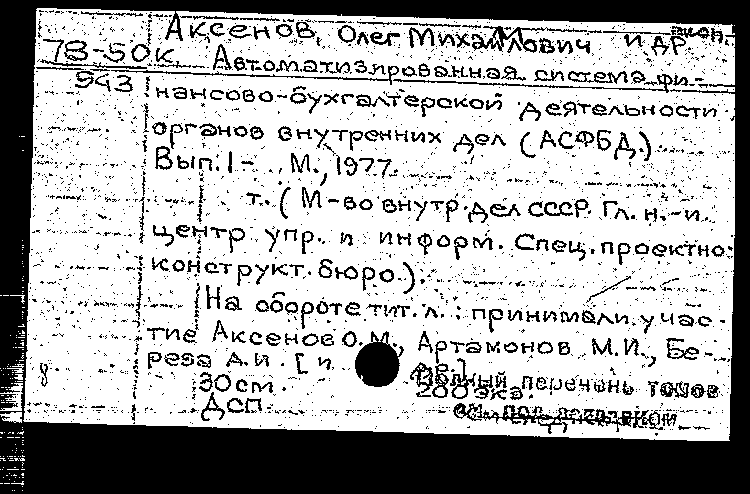 Аксенов, Олег Михайлович и др.
78-50к Автоматизированная система фи-
943 нансово-бухгалтерской деятельности
органов внутренних дел (АСФБД.)
Вып. 1- . М., 1977.
т. (М-во внутр. дел СССР. Гл. н.-и.
центр упр. и информ. Спец. проектно-
конструкт. бюро.).
На обороте тит. л.: принимали учас-
тие Аксенов О.М., Артамонов М.И., Бе-
реза А.И. [и др.]
8 30 см. 200 экз.
Полный перечень томов
ДСП см. под